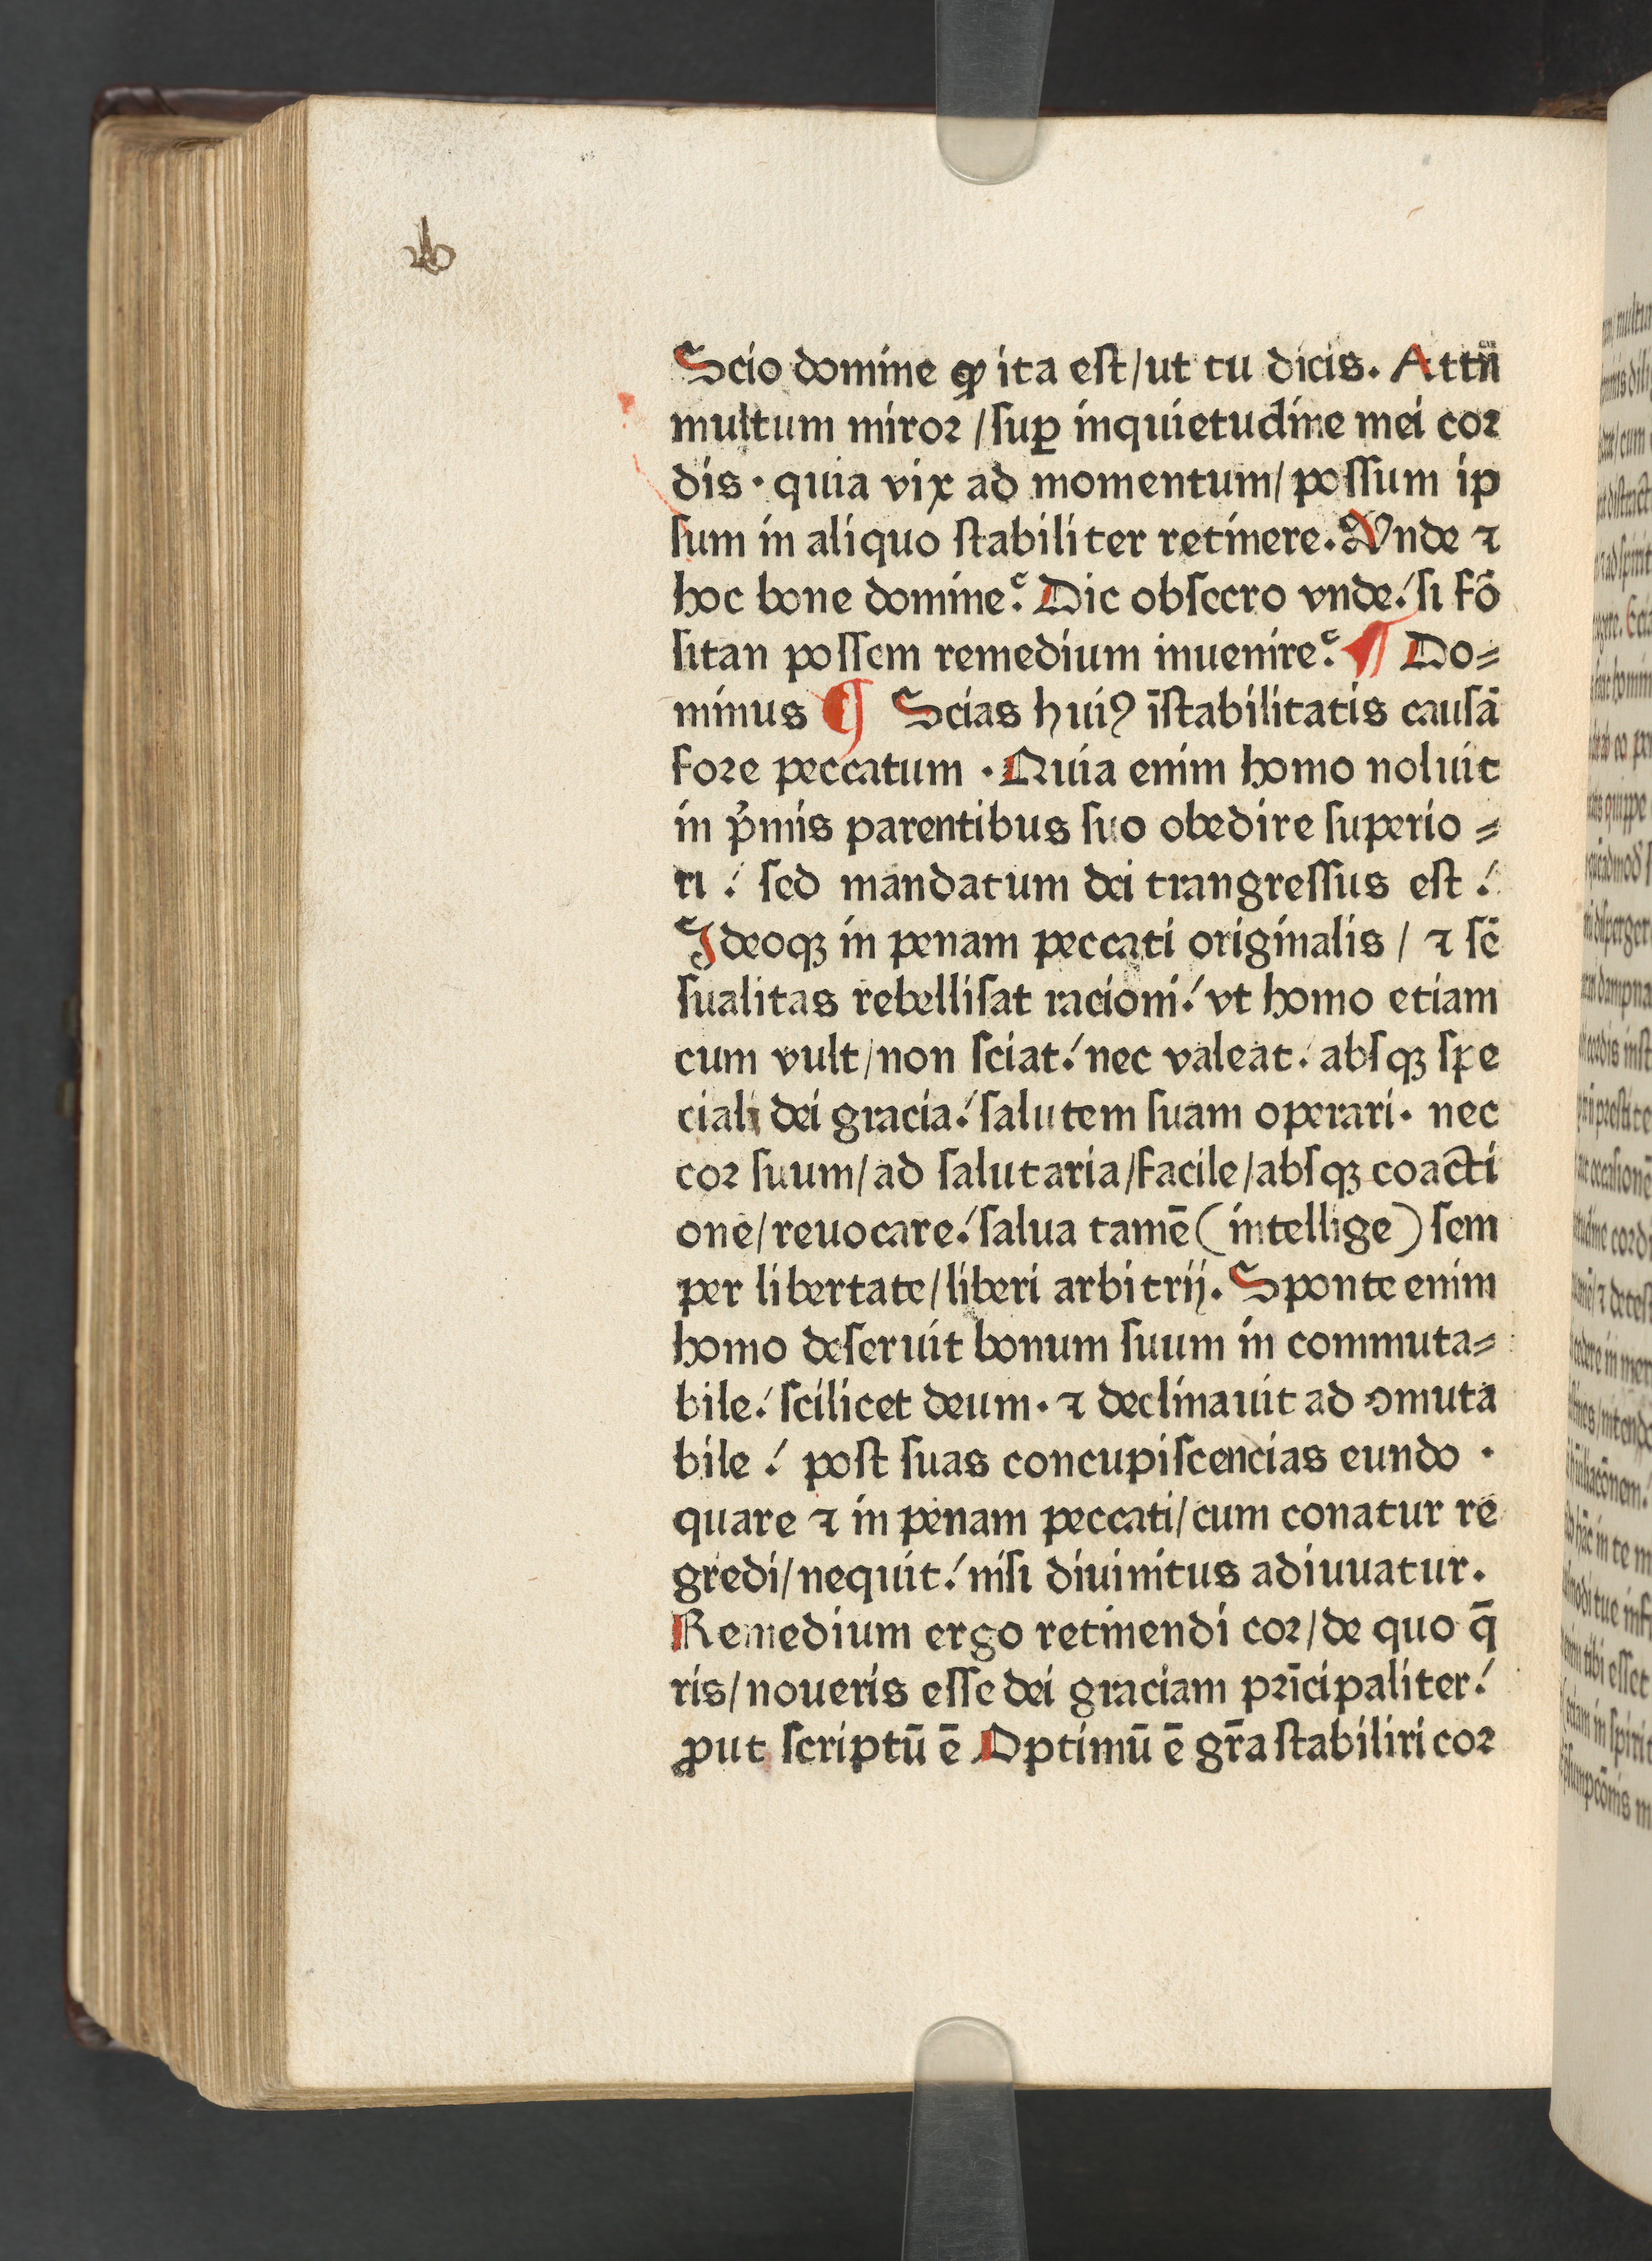 Scio domine ꝙ ita eſt/ut tu dicis. Attn̄
multum miroꝛ /ſuꝑ inquietudine mei coꝛ
dis · quia vix ad momentum/ poſſum ip
ſum in aliquo ſtabiliter retinere. Vnde ⁊
hoc bone domine? Dic obſecro vnde! ſi fō
ſitan poſſem remedium inuenire? ¶ Do⸗
minus ¶ Scias huiꝰ īſtabilitatis cauſā
foꝛe peccatum · Quia enim homo noluit
in p̓mis parentibus ſuo obedire ſuperio ⸗
ri ! ſed mandatum dei trangreſſus eſt !
Ideoqꝫ in penam peccati originalis / ⁊ ſē
ſualitas rebelliſat racioni! vt homo etiam
cum vult/non ſciat! nec valeat! abſqꝫ ſpe
ciali dei gracia! ſalutem ſuam operari · nec
coꝛ ſuum/ad ſalutaria/facile/abſqꝫ coacti
one/reuocare! ſalua tamē (intellige) ſem
per libertate/liberi arbitrij. Sponte enim
homo deſeruit bonum ſuum in commuta⸗
bile! ſcilicet deum · ⁊ declinauit ad ꝯmuta
bile ! poſt ſuas concupiſcencias eundo ·
quare ⁊ in penam peccati/cum conatur re
gredi/nequit! niſi diuinitus adiuuatur.
Remedium ergo retinendi coꝛ/de quo q̄
ris/noueris eſſe dei graciam pꝛīcipaliter!
ꝓut ſcriptū ē Optimū ē gr̄a ſtabiliri coꝛ